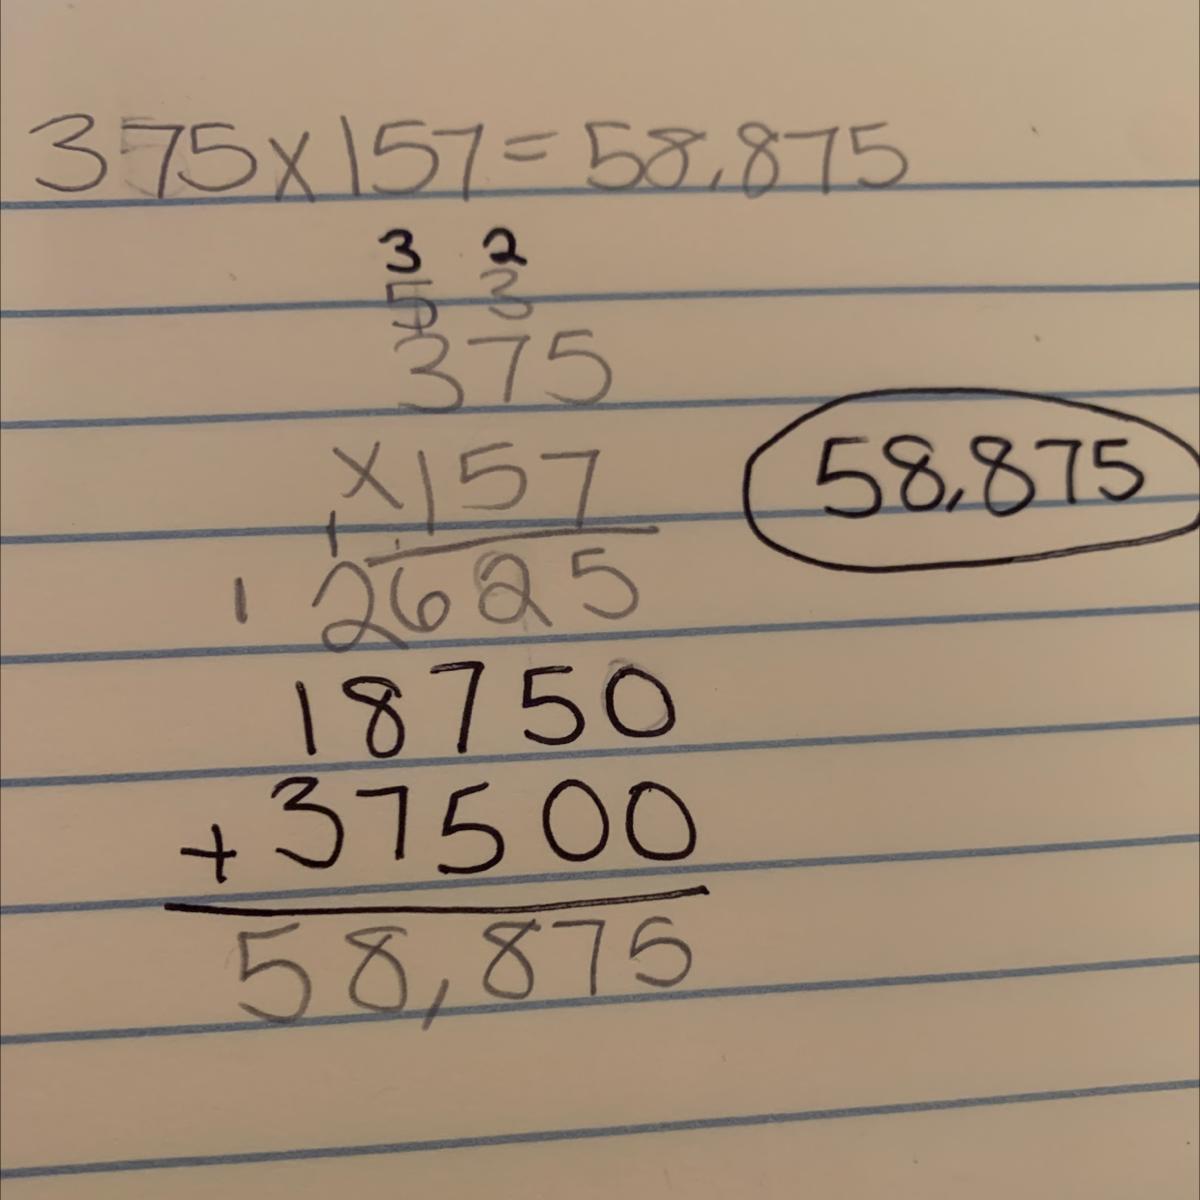 375x157=58,875
3 2
5 3
375
x157
1 1
1 2625
18750
+37500
58,875
58,875